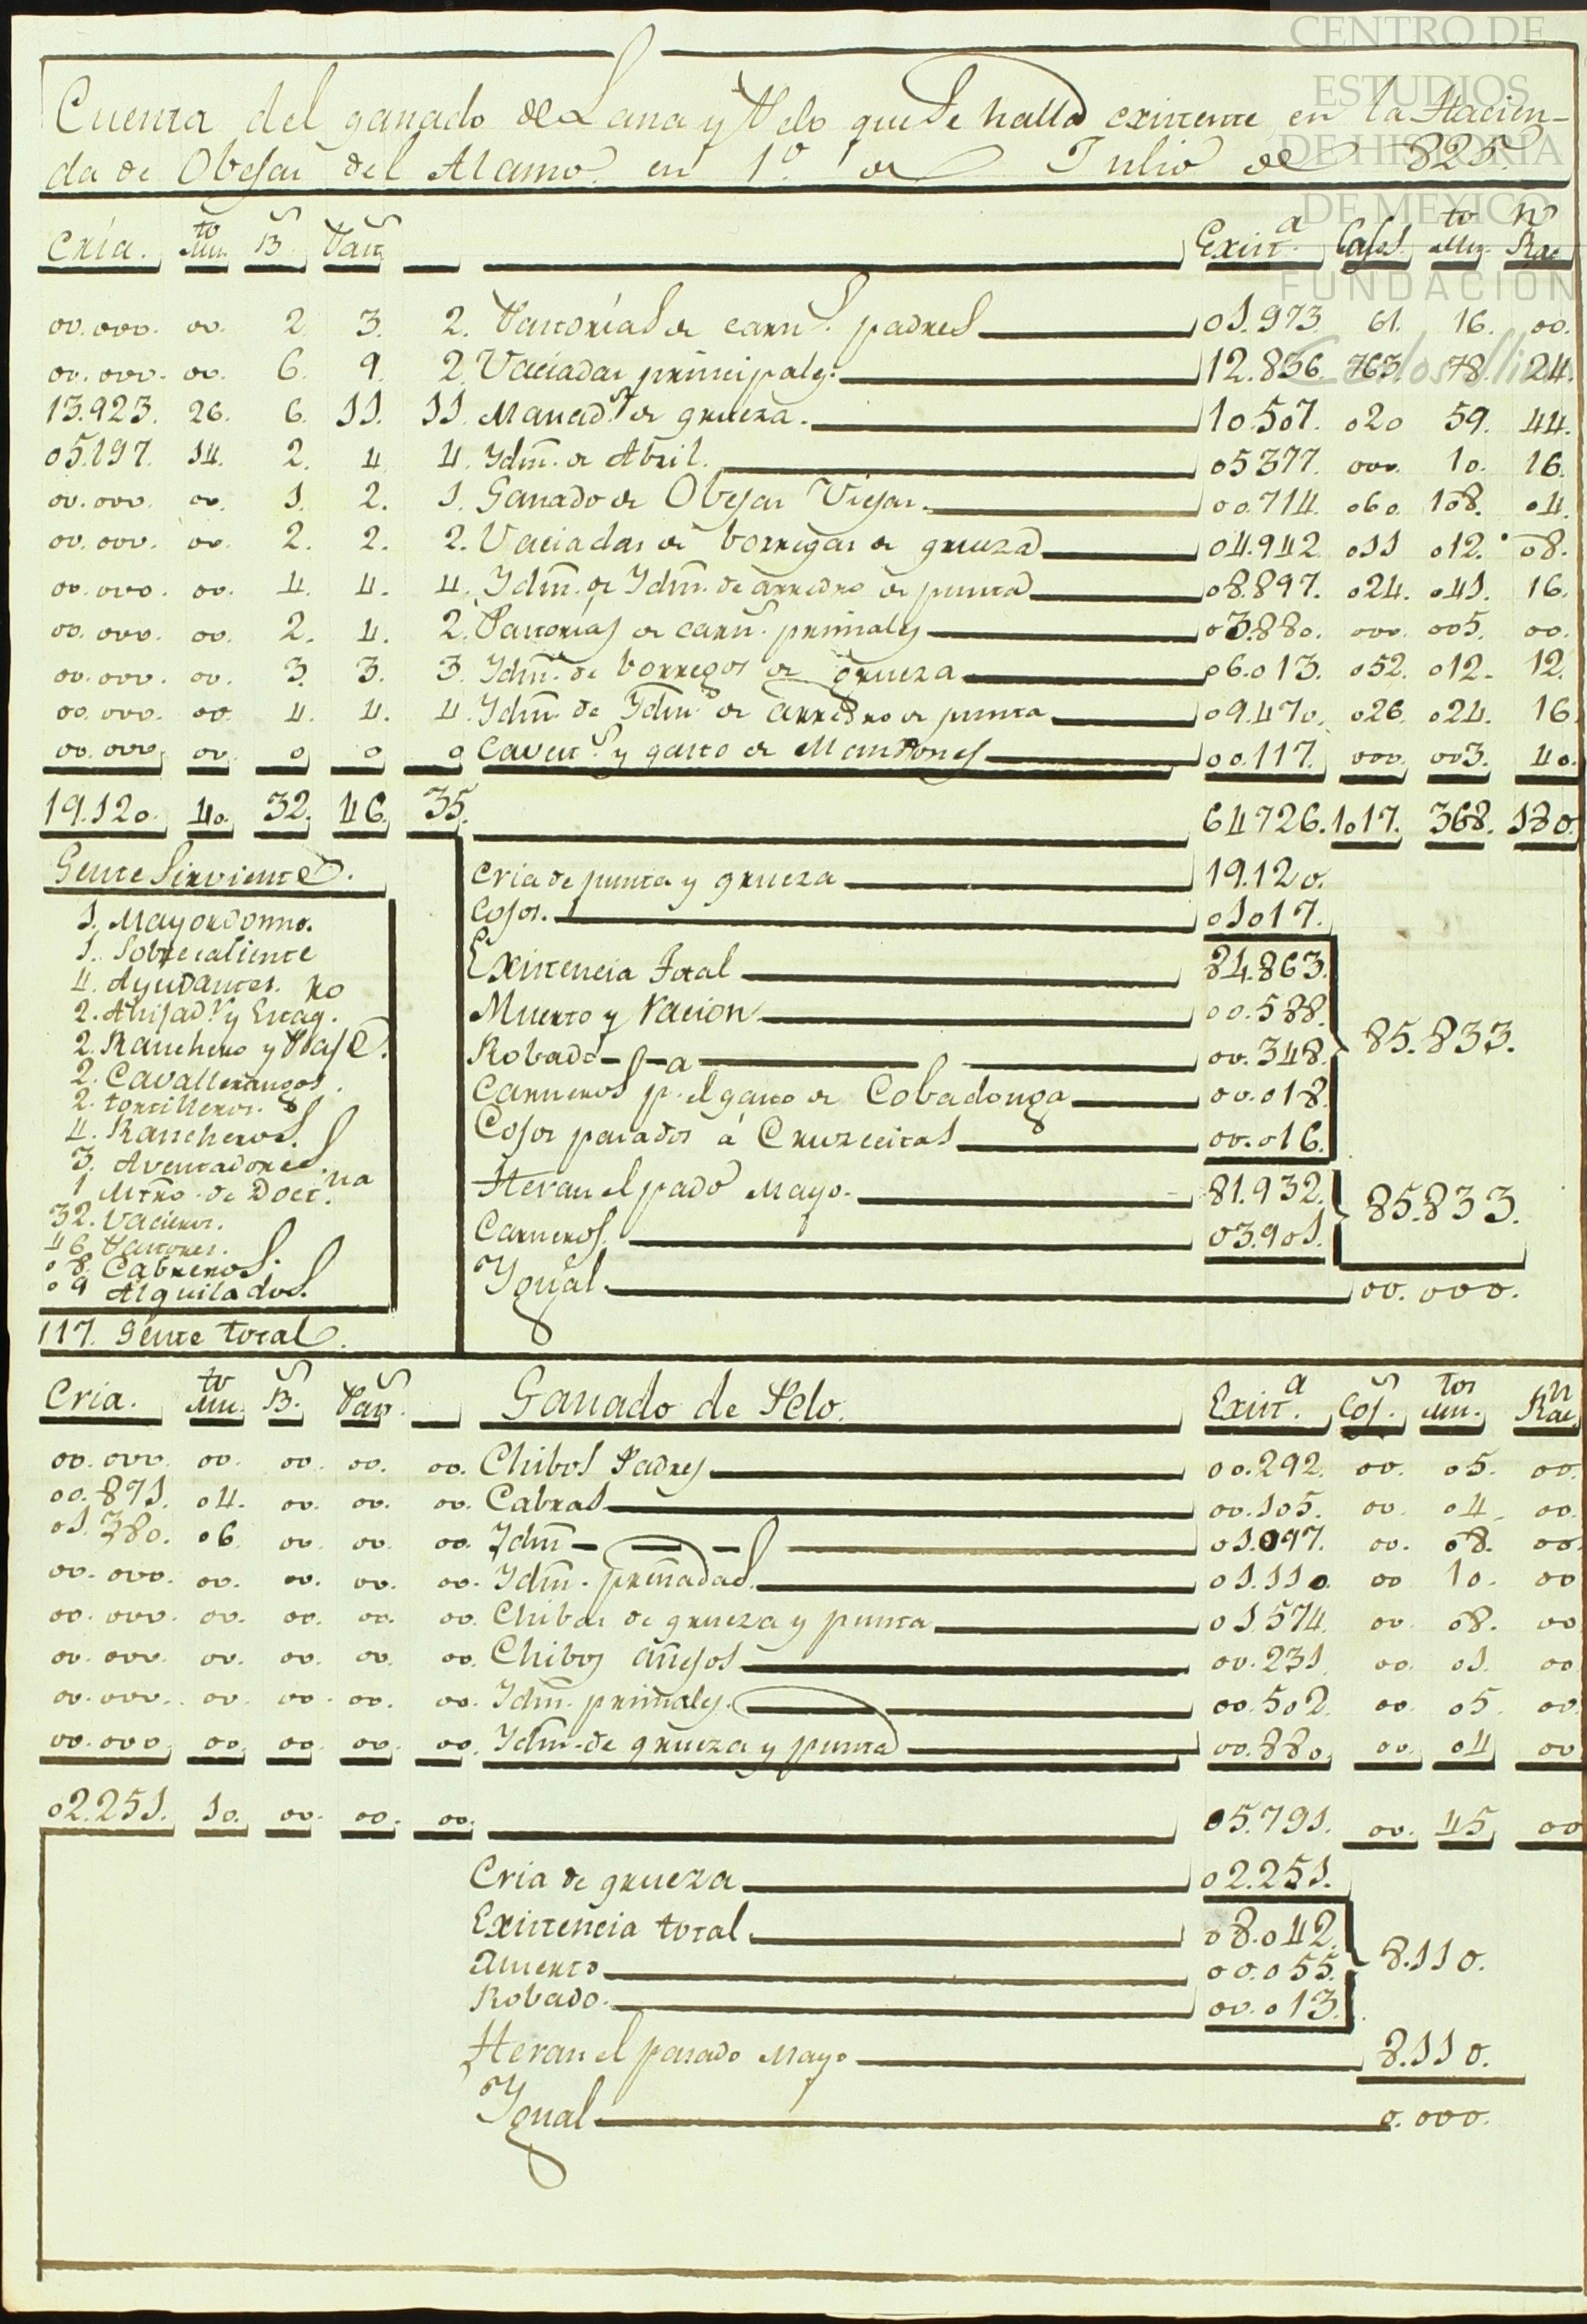 CENTRO DE
ESTUDIOS
DE HISTORIA
DE MEXICO
FUNDACIÓN
Carlos Slim
Cuenta del ganado de Lana y Pelo que Se halla existente en la Hacien-
da de Obejas del Alamo en 1º de Julio de 825.
Cria. Mu.to B.s Past.s Exist.a Cojos. Mu.to Rac.n
00.000. 00. 2. 3. 2. Pastorías de carn.s padres 01.973. 61. 16. 00.
00.000. 00. 6. 9. 2. Vaciadas principales. 12.836. 763. 78. 24.
13.923. 26. 6. 11. 11. Manad.s de grueza. 10.507. 020 59. 44.
05.197. 14. 2. 4 4. Ydm. de Abril. 05377. 000. 10. 16.
00.000. 00. 1. 2. 1. Ganado de Obejas Viejas. 00.714. 060. 108. 04.
00.000. 00. 2. 2. 2. Vaciadas de borregas de grueza 04.942. 011 012. 08.
00.000. 00. 4. 4. 4. Ydm. de Ydm. de arredro de punta 08.897. 024. 041. 16.
00.000. 00. 2. 4. 2. Pastorías de carn.s primales 03.880. 000. 005. 00.
00.000. 00. 3. 3. 3. Ydm. de borregos de grueza 06.013. 052. 012. 12.
00.000. 00. 4. 4. 4. Ydm. de Ydm. de arredro de punta 09.470. 026. 024. 16
00.000. 00. 0 0 0 Cavest.s y gasto de Mandones 00.117. 000. 003. 40.
19.120. 40. 32. 46. 35. 64726. 1.017. 368. 180.
Gente Sirviente.
1. Mayordomo.
1. Sobresaliente
4. Ayudantes.
2. Ahijad.r y Escag.ro
2. Ranchero y Pasg.e
2. Cavallerangos.
2. tortilleros.
4. Rancheros.
3. Aventadores.
1 Mtro. de Doct.na
32. Vacieros.
46. Pastores.
08. Cabreros.
09 Alquilados.
117. Gente total.
Cria de punta y grueza 19.120.
Cojos. 01017.
Existencia Total 84.863.
Muerto y racion 00.588.
Robado 00.348. 85.833.
Carneros p.a el gasto de Cobadonga 00.018.
Cojos pasados á Cruzecitas 00.016.
Heran el pado Mayo. 81.932. 85.833.
Carneros. 03.901.
Ygual. 00.000.
Cria. Mu.to B.s Pas.s Ganado de Pelo. Exist.a Coj.s Mu.tos Rac.n
00.000. 00. 00. 00. 00. Chibos Padres 00.292. 00. 05. 00.
00.871. 04. 00. 00. 00. Cabras 00.105. 00. 04. 00.
01.380. 06. 00. 00. 00. Ydm 01.097. 00. 08. 00.
00.000. 00. 00. 00. 00. Ydm. preñadas. 01.110. 00 10. 00
00.000. 00. 00. 00. 00. Chibas de grueza y punta 01.574. 00 08. 00
00.000. 00. 00. 00. 00. Chibos añejos 00.231. 00. 01. 00
00.000. 00. 00. 00. 00. Ydm. primales. 00.502. 00. 05. 00
00.000. 00. 00. 00. 00. Ydm. de grueza y punta 00.880. 00. 04 00
02.251. 10. 00. 00. 00. 05.791. 00. 45. 00
Cria de grueza 02.251.
Existencia total. 08.042.
Muerto 00.055. 8.110.
Robado. 00.013.
Heran el pasado Mayo 8.110.
Ygual 0.000.